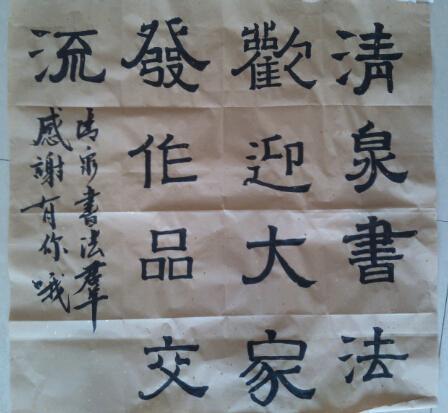 清泉書法
歡迎大家
發作品交
流
清泉書法群
感謝有你哦